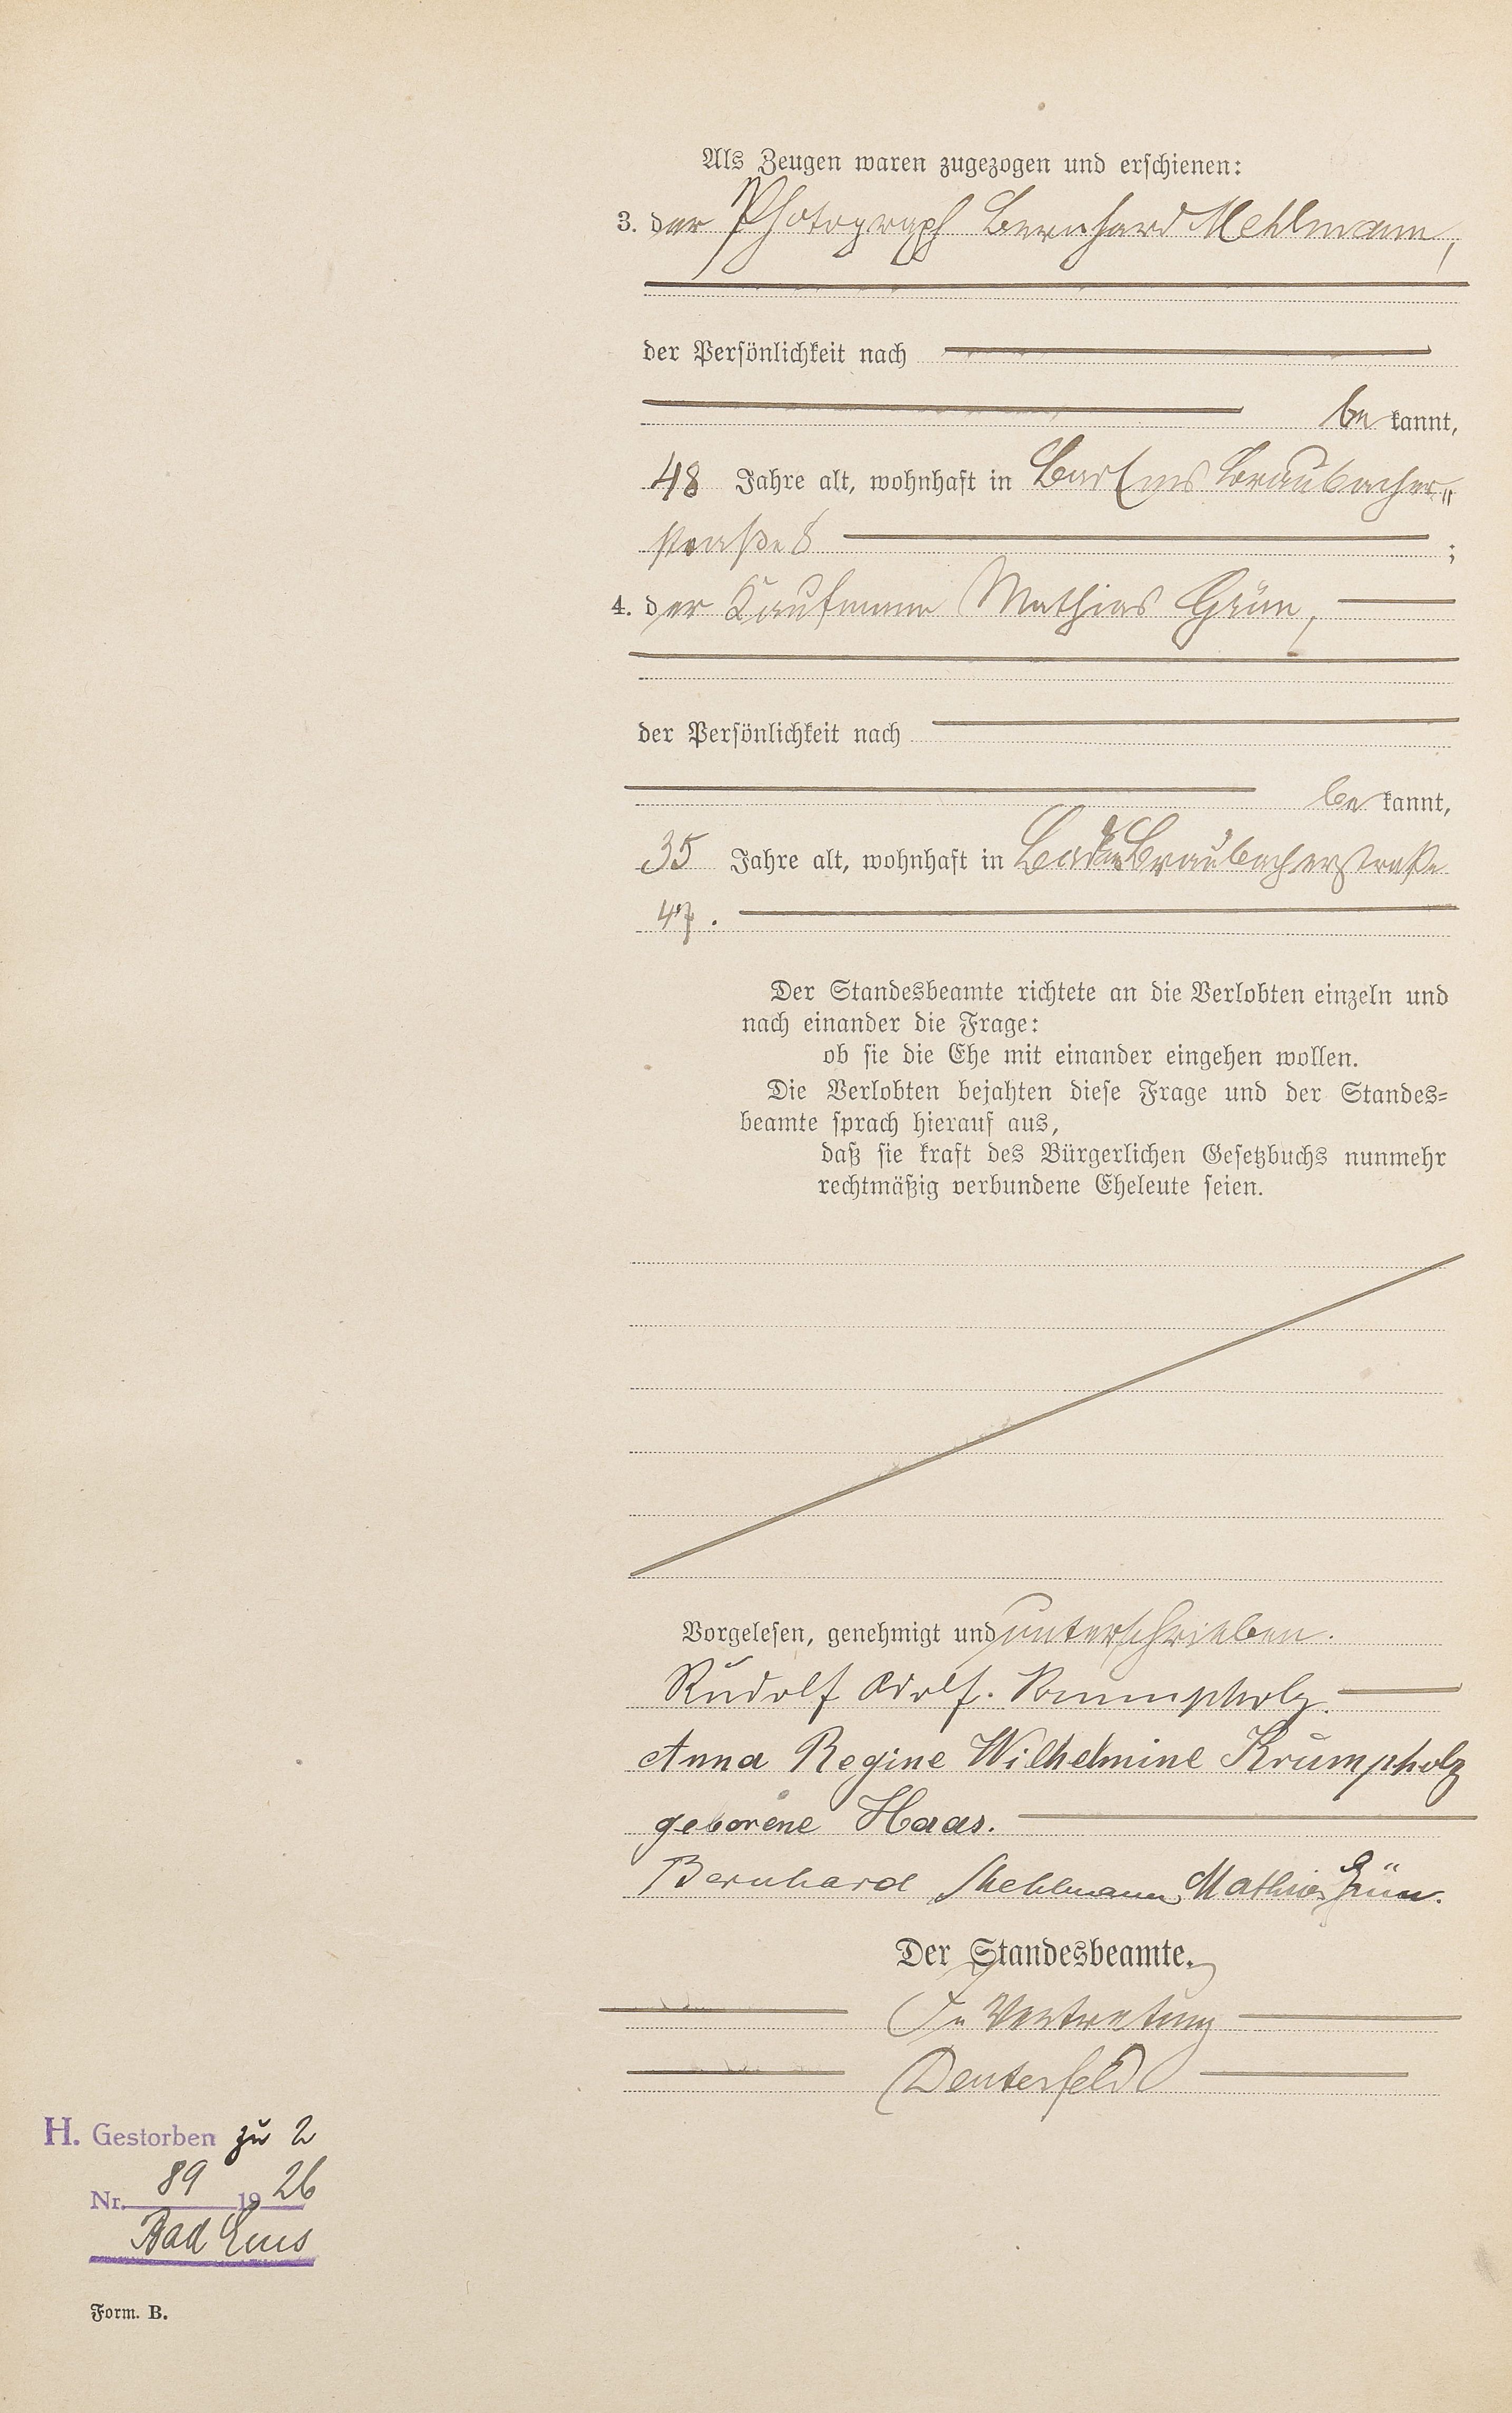 Als Zeugen waren zugezogen und erschienen:
3. der Photograph Bernhard Mehlmann,
der Persönlichkeit nach
be kannt,
48 Jahre alt, wohnhaft in Bad Ems Braubacher„
straße 8 ;
4. der Kaufmann Mathias Grün,
der Persönlichkeit nach
be kannt,
35 Jahre alt, wohnhaft in Bad Ems Braubacherstraße
47.
Der Standesbeamte richtete an die Verlobten einzeln und
nach einander die Frage:
ob sie die Ehe mit einander eingehen wollen.
Die Verlobten bejahten diese Frage und der Standes=
beamte sprach hierauf aus,
daß sie kraft des Bürgerlichen Gesetzbuchs nunmehr
rechtmäßig verbundene Eheleute seien.
Vorgelesen, genehmigt und unterschrieben.
Rudolf Adolf Krumpholz.
Anna Regine Wilhelmine Krumpholz
geborene Haas.
Bernhard Mehlmann, Mathias Grün.
Der Standesbeamte.
In Vertretung
H. Gestorben zu 2
Nr. 89 1926
Bad Ems
Form. B.